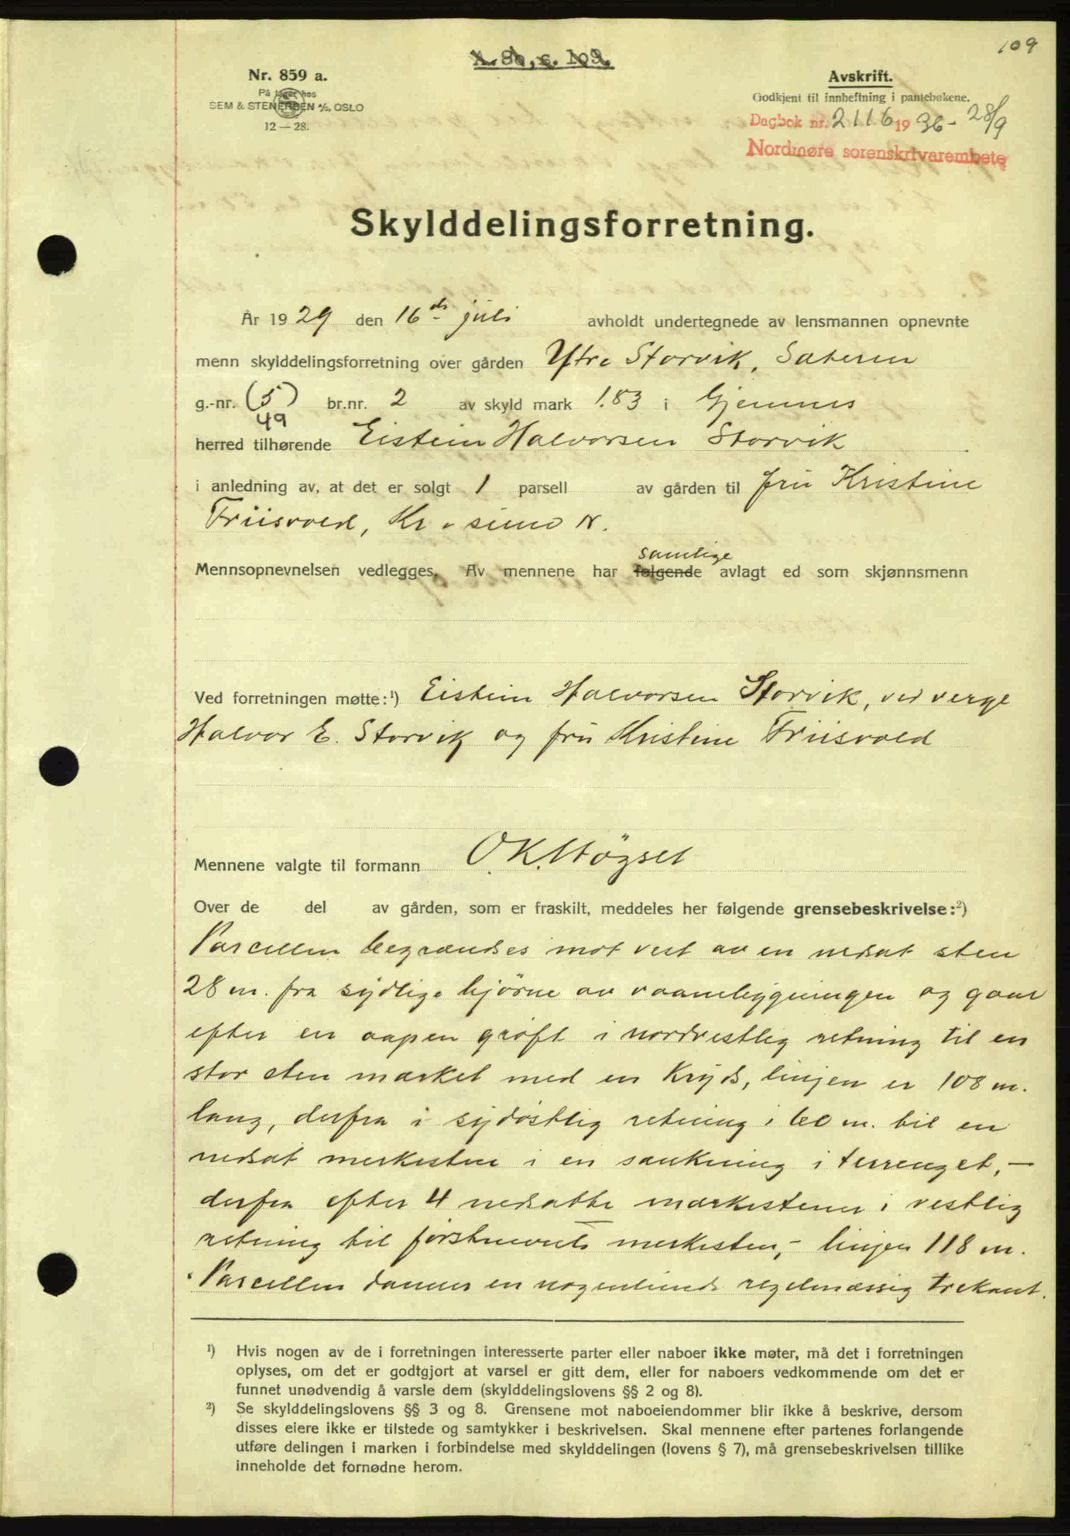 109
A. 8b, s. 109.
Nr. 859 a.
På lager hos
SEM & STENERSEN A/S. OSLO
12—28.
Avskrift.
Godkjent til innheftning i pantebøkene.
Dagbok nr. 2116 1936 - 28/9
Nordmøre sorenskrivarembete
Skylddelingsforretning.
År 1929 den 16de juli avholdt undertegnede av lensmannen opnevnte
menn skylddelingsforretning over gården Ytre Storvik, Sæteren
g.-nr. (5) br.nr. 2 av skyld mark 1.83 i Gjemnes
49
herred tilhørende Eistein Halvorsen Storvik
i anledning av, at det er solgt 1 parsell av gården til fru Kristine
Friisvold, Kr.sund N.
samlige
Mennsopnevnelsen vedlegges. Av mennene har følgende avlagt ed som skjønnsmenn
Ved forretningen møtte:¹) Eistein Halvorsen Storvik, ved verge
Halvor E. Storvik og fru Kristine Friisvold
Mennene valgte til formann O.K. Høgset
Over de del av gården, som er fraskilt, meddeles her følgende grensebeskrivelse:²)
Parcellen begrændses mot vest av en nedsat sten
28 m. fra sydlige hjörne av vaanebygningen og gaar
efter en aapen gröft i nordvestlig retning til en
stor sten merket med en kryds, linjen er 108 m.
lang, derfra i sydöstlig retning i 60 m. til en
nedsat merkesten i en sænkning i terrenget, —
derfra efter 4 nedsatte merkestener i vestlig
retning til förstnevnte merkesten, - linjen 118 m.
Parcellen danner en nogenlunde regelmæssig trekant.
¹) Hvis nogen av de i forretningen interesserte parter eller naboer ikke møter, må det i forretningen
oplyses, om det er godtgjort at varsel er gitt dem, eller for naboers vedkommende om det er
funnet unødvendig å varsle dem (skylddelingslovens §§ 2 og 8).
²) Se skylddelingslovens §§ 3 og 8. Grensene mot naboeiendommer blir ikke å beskrive, dersom
disses eiere ikke er tilstede og samtykker i beskrivelsen. Skal mennene efter partenes forlangende
utføre delingen i marken i forbindelse med skylddelingen (lovens § 7), må grensebeskrivelsen tillike
inneholde det fornødne herom.